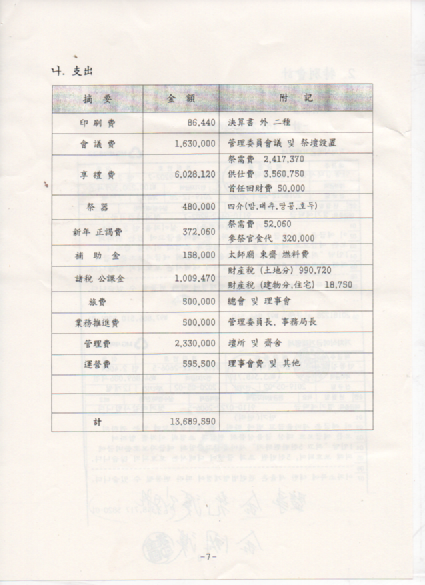 나. 支出
摘 要 金 額 附 記
印刷費 86,440 決算書 外 二種
會議費 1,630,000 管理委員會議 및 祭壇設置
享禮費 6,028,120 祭需費 2,417,370
供仕費 3,560,750
首任回財費 50,000
祭器 480,000
新年 正謁費 372,060 祭需費 52,060
參祭官金代 320,000
補助金 158,000 太師廟 東齋 燃料費
諸稅 公課金 1,009,470 財産稅 (土地分) 990,720
財産稅 (建物分,住宅) 18,750
旅費 500,000 總會 및 理事會
業務推進費 500,000 管理委員長, 事務局長
管理費 2,330,000 壇所 및 齋舍
運營費 595,500 理事會費 및 其他
計 13,689,590
-7-